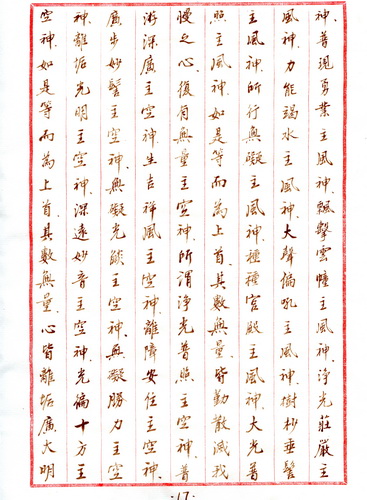 神、普現勇業主風神、飄擊雲幢主風神、淨光莊嚴主
風神、力能竭水主風神、大聲徧吼主風神、樹杪垂髻
主風神、所行無礙主風神、種種宮殿主風神、大光普
照主風神、如是等而為上首、其數無量、皆勤散滅我
慢之心、復有無量主空神、所謂淨光普照主空神、普
游深廣主空神、生吉祥風主空神、離障安住主空神、
廣步妙髻主空神、無礙光燄主空神、無礙勝力主空
神、離垢光明主空神、深遠妙音主空神、光徧十方主
空神、如是等而為上首、其數無量、心皆離垢、廣大明
·17·